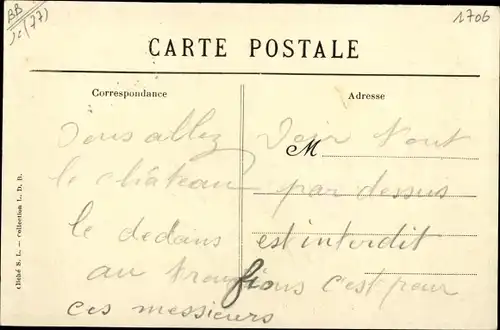 BB
(77)
1706
CARTE POSTALE
Correspondance
Adresse
M
Vous allez voir tout
le château par dessus
le dedans est interdit
au fions c'est pour
ces messieurs
cliché S. L. — collection L. D. B.